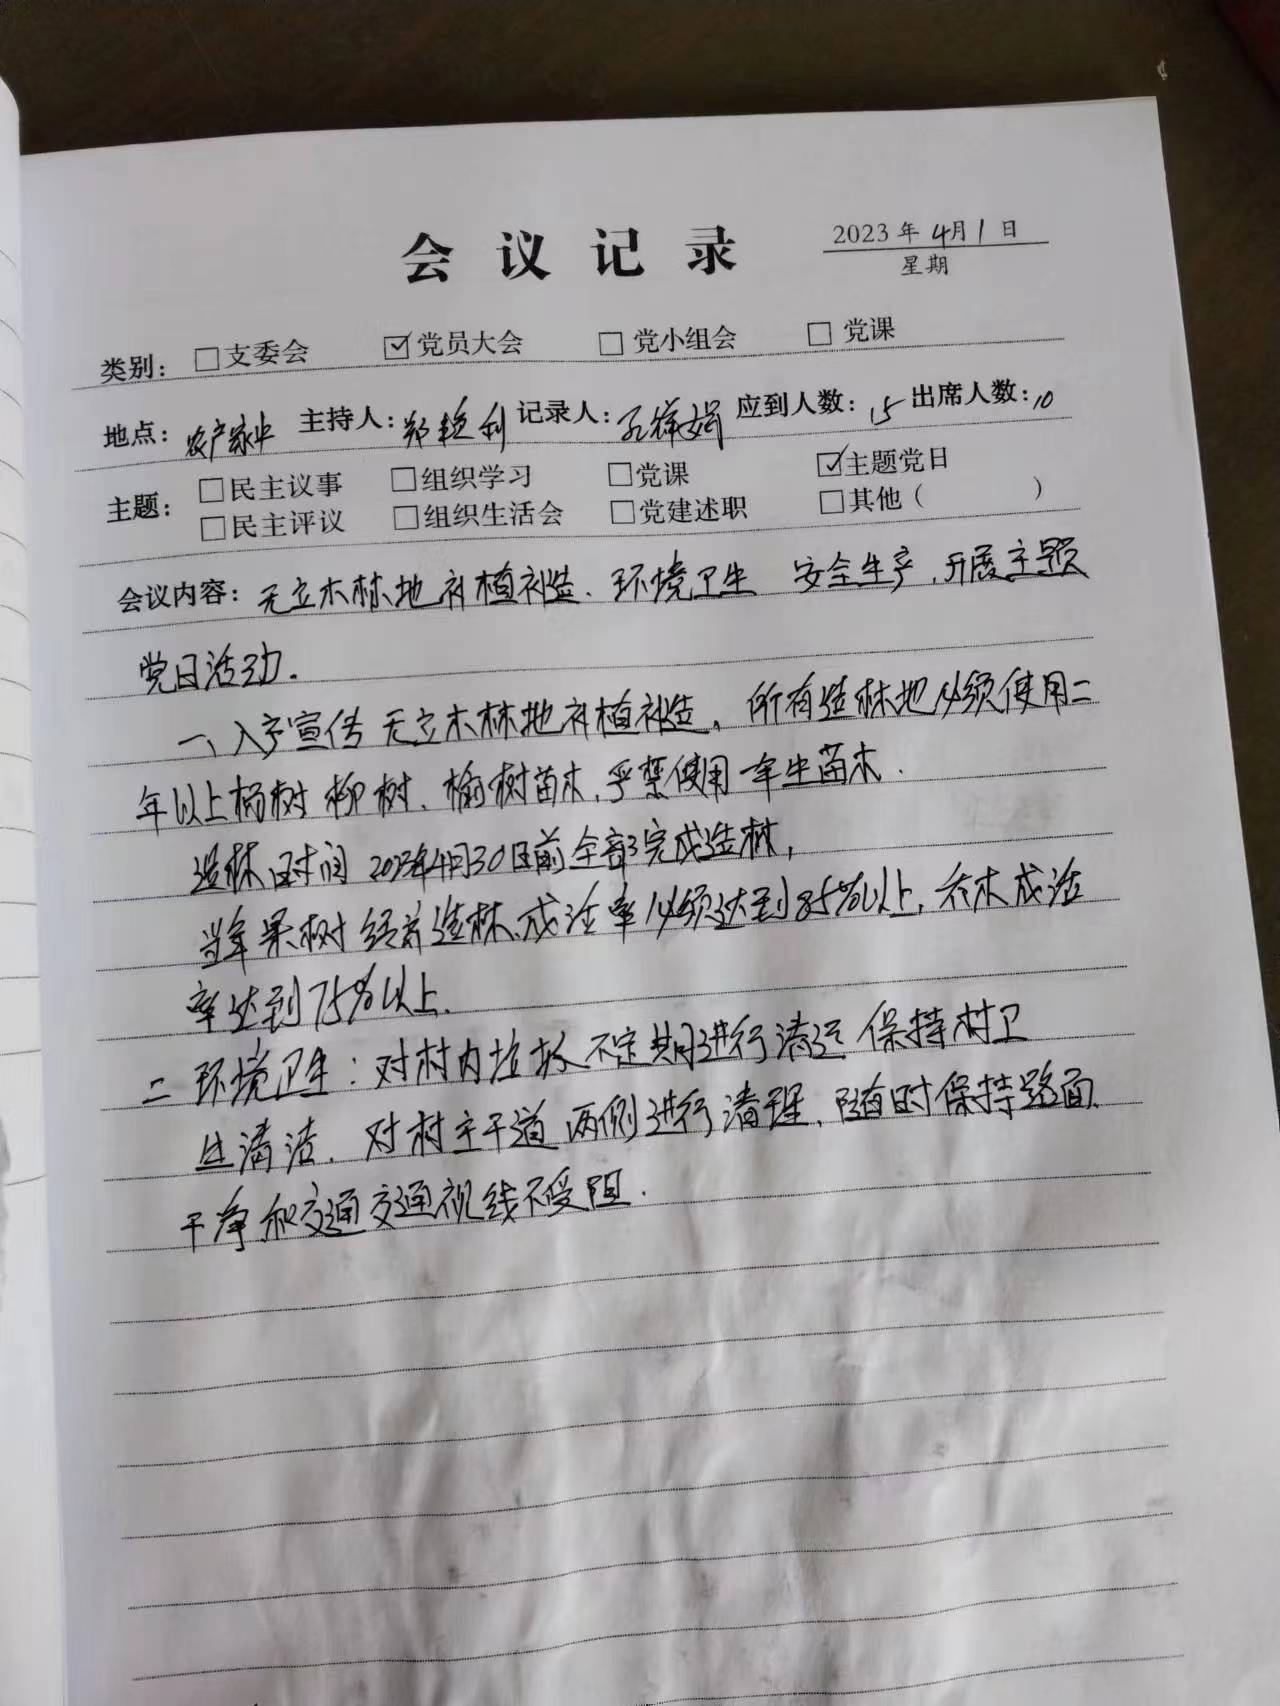 会议记录
2023年4月1日
星期
类别：□支委会 ☑党员大会 □党小组会 □党课
地点：农户家中 主持人：郑艳利 记录人：孔祥娟 应到人数：15 出席人数：10
主题：□民主议事 □组织学习 □党课 ☑主题党日
□民主评议 □组织生活会 □党建述职 □其他（ ）
会议内容：无立木林地补植补造、环境卫生 安全生产，开展主题
党日活动.
一、入户宣传 无立木林地补植补造，所有造林地必须使用二
年以上杨树 柳树、榆树苗木，严禁使用一年生苗木.
造林时间 2023年4月30日前全部完成造林，
当年果树经济造林、成活率必须达到85%以上，乔木成活
率达到75%以上.
二 环境卫生：对村内垃圾不定期进行清运 保持村卫
生清洁. 对村主干道两侧进行清理、随时保持路面、
干净和交通交通视线不受阻.